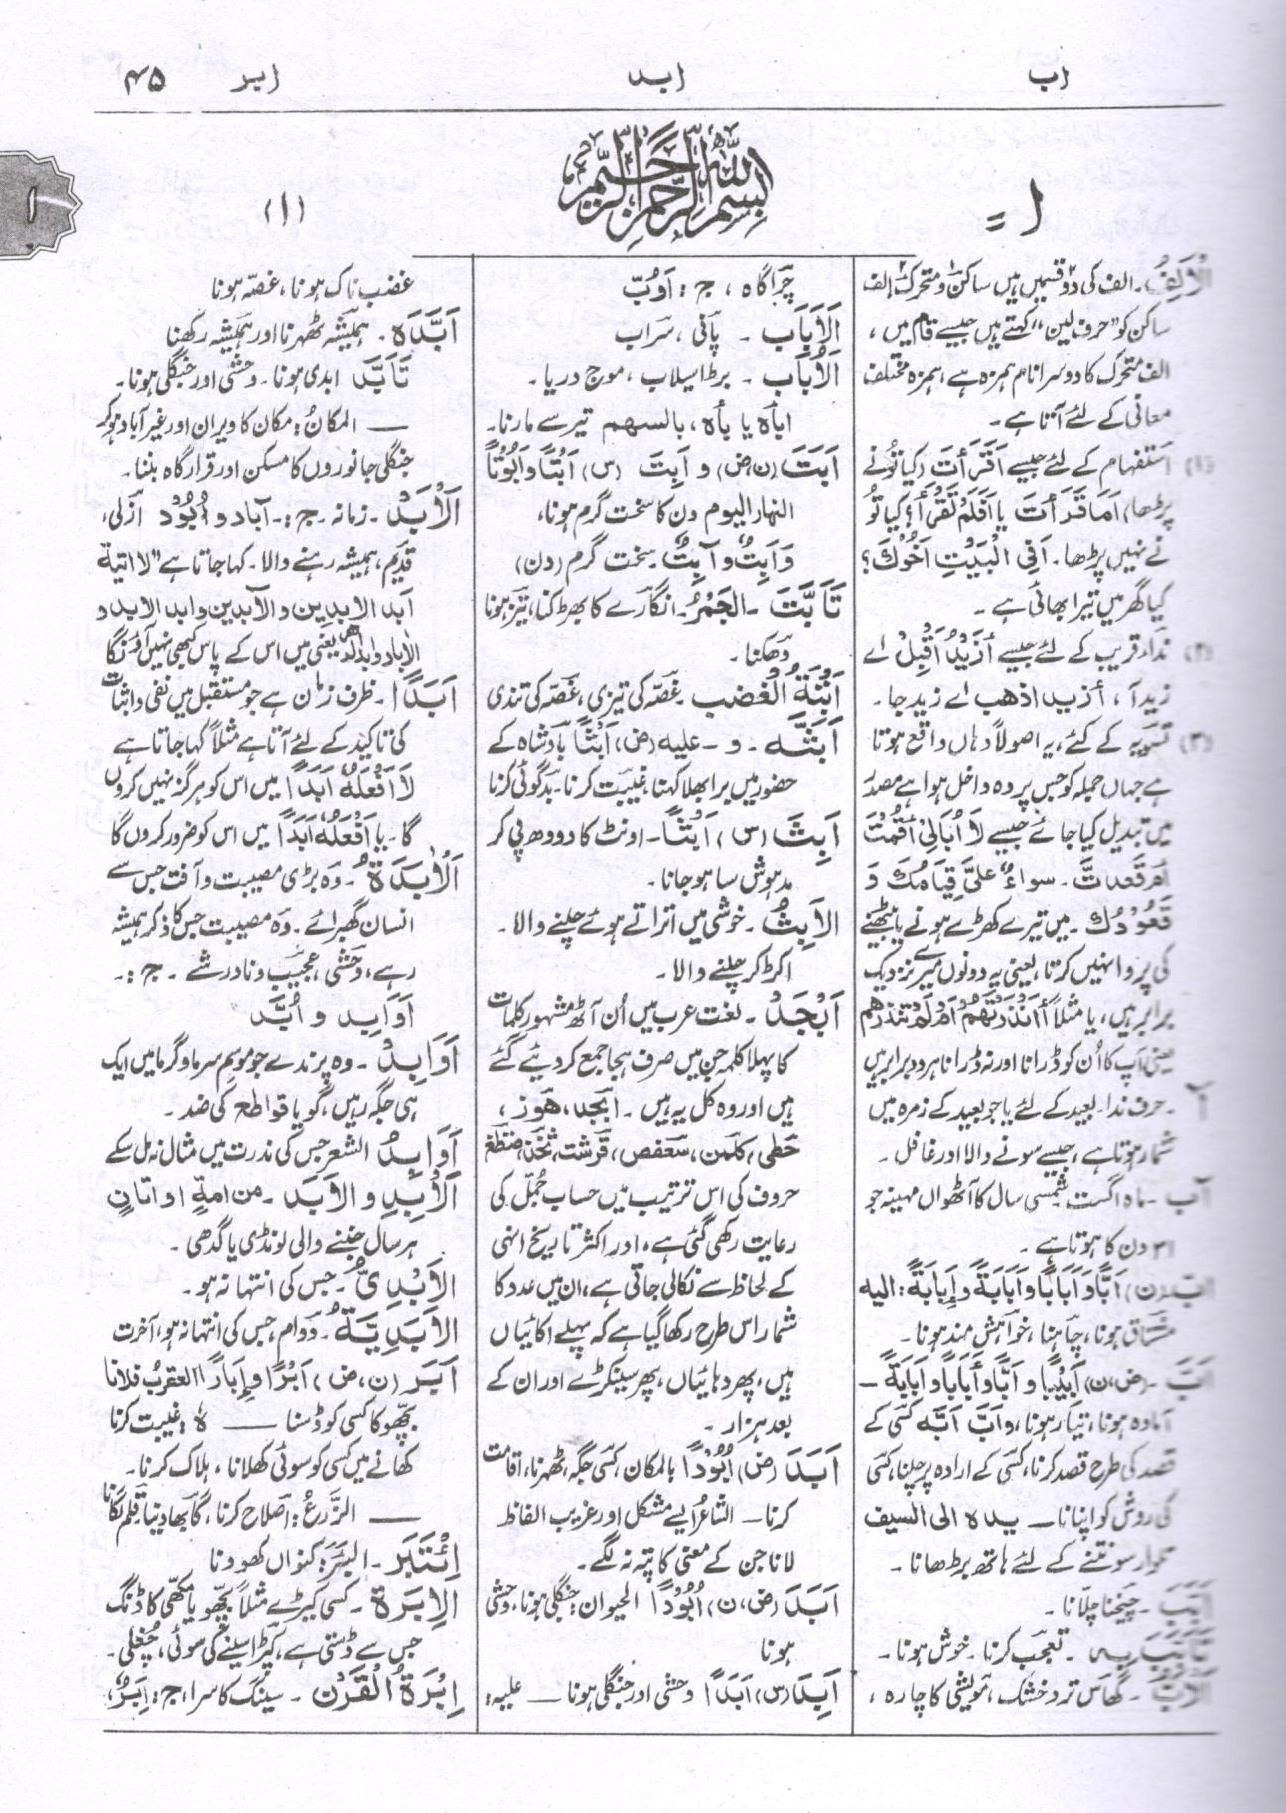 اب
ابد
ابر
۴۵
بِسْمِ اللهِ الرَّحْمٰنِ الرَّحِيْمِ
ا
ا =
(ا)
اَلْاَلِفُ۔ الف کی دو قسمیں ہیں ساکن و متحرک، الف
ساکن کو ”حرف لین“ کہتے ہیں جیسے قام میں،
الف متحرک کا دوسرا نام ہمزہ ہے، ہمزہ مختلف
معانی کے لئے آتا ہے۔
(۱) استفہام کے لئے جیسے اَقَرَأتَ (کیا تُو نے
پڑھا) اَمَا قَرَأتَ یا اَفَلَمْ تَقْرَأ؟ کیا تُو
نے نہیں پڑھا۔ اَفِی الْبَيْتِ اَخُوْكَ؟
کیا گھر میں تیرا بھائی ہے۔
(۲) نداء قریب کے لئے جیسے أزَيْدُ اَقْبِلْ اے
زید آ، أزيد اذهب اے زید جا۔
(۳) تسویہ کے لئے، یہ اصولاً وہاں واقع ہوتا
ہے جہاں جملہ کو جس پر وہ داخل ہوا ہے مصدر
میں تبدیل کیا جائے جیسے لَا اُبَالِیْ أَقُمْتَ
أم قَعدتَّ۔ سواءٌ علیَّ قِيَامُكَ وَ
قعُوْدُكَ۔ میں تیرے کھڑے ہونے یا بیٹھنے
کی پروا نہیں کرتا، یعنی یہ دونوں میرے نزدیک
برابر ہیں، یا مثلاً أَأَنْذَرْتَهُمْ اَمْ لَمْ تُنذِرْهم
یعنی آپ کا اُن کو ڈرانا اور نہ ڈرانا ہر دو برابر ہیں
آ۔ حرف ندا۔ بعید کے لئے یا جو بعید کے زمرہ میں
شمار ہوتا ہے، جیسے سونے والا اور غافل۔
آب۔ ماہ اگست، شمسی سال کا آٹھواں مہینہ جو
۳۱ دن کا ہوتا ہے۔
ابَّ (ن) اَبًّا وَاَبَابًا وَاَبَابَةً وَإِبَابَةً: اليه
مشتاق ہونا، چاہنا، خواہش مند ہونا۔
اَبَّ۔ (ض،ن) اَبِيْبًا و اَبًّا وَأبَابًا وَ اَبَابَةً ــ
آمادہ ہونا، تیار ہونا، واَبَّ اَبَّه کسی کے
قصد کی طرح قصد کرنا، کسی کے ارادہ پر چلنا، کسی
کی روش کو اپنانا ــ يده الى السيف
تلوار سونتنے کے لئے ہاتھ بڑھانا۔
اَبَّبَ۔ چیخنا چلّانا۔
تَأَبَّبَ به۔ تعجب کرنا۔ خوش ہونا۔
اَلْاَبُّ۔ گھاس تر و خشک، مویشی کا چارہ،
چراگاہ، ج: اَوُبّ
اَلْاَبَاب۔ پانی، سراب
اَلْاُبَاب۔ بڑا سیلاب، موج دریا۔
ابأہ یا بأہ، بالسهم تیر سے مارنا۔
اَبَتَ (ن،ض) و اَبِتَ (س) اَبْتًا وَاُبُوْتًا
النهار اليوم دن کا سخت گرم ہونا،
وَاَبِتٌ و آبِتٌ۔ سخت گرم (دن)
تَأَبَّتَ۔ الجَمْرُ۔ انگارے کا بھڑکنا، تیز ہونا
دھکنا۔
اَبْتَةُ الْغضب۔ غصّہ کی تیزی، غصّہ کی تندی
اَبَثَہ۔ و۔ علیه (ض) اَبْثًا بادشاہ کے
حضور میں برا بھلا کہنا، غیبت کرنا۔ بدگوئی کرنا
اَبِثَ (س) اَبَثًا۔ اونٹ کا دودھ پی کر
مدہوش سا ہو جانا۔
الاَبِثُ۔ خوشی میں اتراتے ہوئے چلنے والا۔
اکڑ کر چلنے والا۔
اَبْجَدْ۔ لغت عرب میں اُن آٹھ مشہور کلمات
کا پہلا کلمہ جن میں صرف ہجا جمع کر دیئے گئے
ہیں اور وہ کل یہ ہیں۔ ابجد، هوز،
حطی، کلمن، سعفص، قرشت، ثخذ، ضظغ
حروف کی اس ترتیب میں حساب جُمّل کی
رعایت رکھی گئی ہے، اور اکثر تاریخ انہی
کے لحاظ سے نکالی جاتی ہے، ان میں عدد کا
شمار اس طرح رکھا گیا ہے کہ پہلے اکائیاں
ہیں، پھر دہائیاں، پھر سینکڑے اور ان کے
بعد ہزار۔
اَبَدَ (ض) اُبُوْدًا بالمکان، کسی جگہ، ٹھہرنا، اقامت
کرنا ــ الشاعرُ ایسے مشکل اور غریب الفاظ
لانا جن کے معنی کا پتہ نہ لگے۔
اَبَدَ (ض،ن) اُبُوْدًا الحیوان: جنگلی ہونا، وحشی
ہونا
اَبِدَ (س) اَبَدًا وحشی اور جنگلی ہونا ــ علیہ:
غضب ناک ہونا، غصّہ ہونا
اَبَّدَہ۔ ہمیشہ ٹھہرنا اور ہمیشہ رکھنا
تَأَبَّدَ ابدی ہونا۔ وحشی اور جنگلی ہونا۔
ــ المکانُ: مکان کا ویران اور غیر آباد ہو کر
جنگلی جانوروں کا مسکن اور قرار گاہ بننا۔
اَلْاَبَدْ۔ زمانہ۔ ج:۔ آباد و اُبُوْد ازلی،
قدیم، ہمیشہ رہنے والا۔ کہا جاتا ہے ”لا اتیہ
اَبَد الابدین و الآبدین و ابد الابد و
الاباد و ابد الدھر یعنی میں اس کے پاس کبھی نہیں آؤنگا
اَبَدًا۔ ظرف زمان ہے جو مستقبل میں نفی و اثبات
کی تاکید کے لئے آتا ہے مثلاً کہا جاتا ہے
لَا اَفْعَلُهُ اَبَدًا میں اس کو ہرگز نہیں کروں
گا۔ یا اَفْعَلُهُ اَبَدًا میں اس کو ضرور کروں گا
اَلْاٰبِدَةُ۔ وہ بڑی مصیبت و آفت جس سے
انسان گھبرائے۔ وہ مصیبت جس کا ذکر ہمیشہ
رہے، وحشی، عجیب و نادر شے۔ ج:۔
اَوَابِد و اُبَّد
اَوَابِدْ۔ وہ پرندے جو موسم سرما و گرما میں ایک
ہی جگہ رہیں، گویا قواطع کی ضد۔
اَوَابِدُ الشعر جس کی ندرت میں مثال نہ مل سکے
اَلْاِبِدِ و الاَبَد۔ من امةٍ او اتانٍ
ہر سال جننے والی لونڈی یا گدھی۔
الاَبَدِیُّ۔ جس کی انتہا نہ ہو۔
الاَبَدِیَّةُ۔ دوام، جس کی انتہا نہ ہو، آخرت
اَبَرَ (ن، ض) اَبْرًا وإِبَارًا العقربُ فلانا
بچّھو کا کسی کو ڈسنا ــ ہٗ: غیبت کرنا
کھانے میں کسی کو سوئی کھلانا، ہلاک کرنا۔
ــ الزَّرعُ: اصلاح کرنا، گابھا دینا، قلم لگانا
اِئْتَبَرَ۔ البئرَ: کنواں کھودنا
الاِبرَة۔ کسی کیڑے مثلاً بچّھو یا مکھّی کا ڈنگ
جس سے ڈستی ہے، کپڑا سینے کی سوئی، چُغلی۔
اِبْرَةُ الْقَرْن۔ سینگ کا سرا، ج: اِبَرٌ،